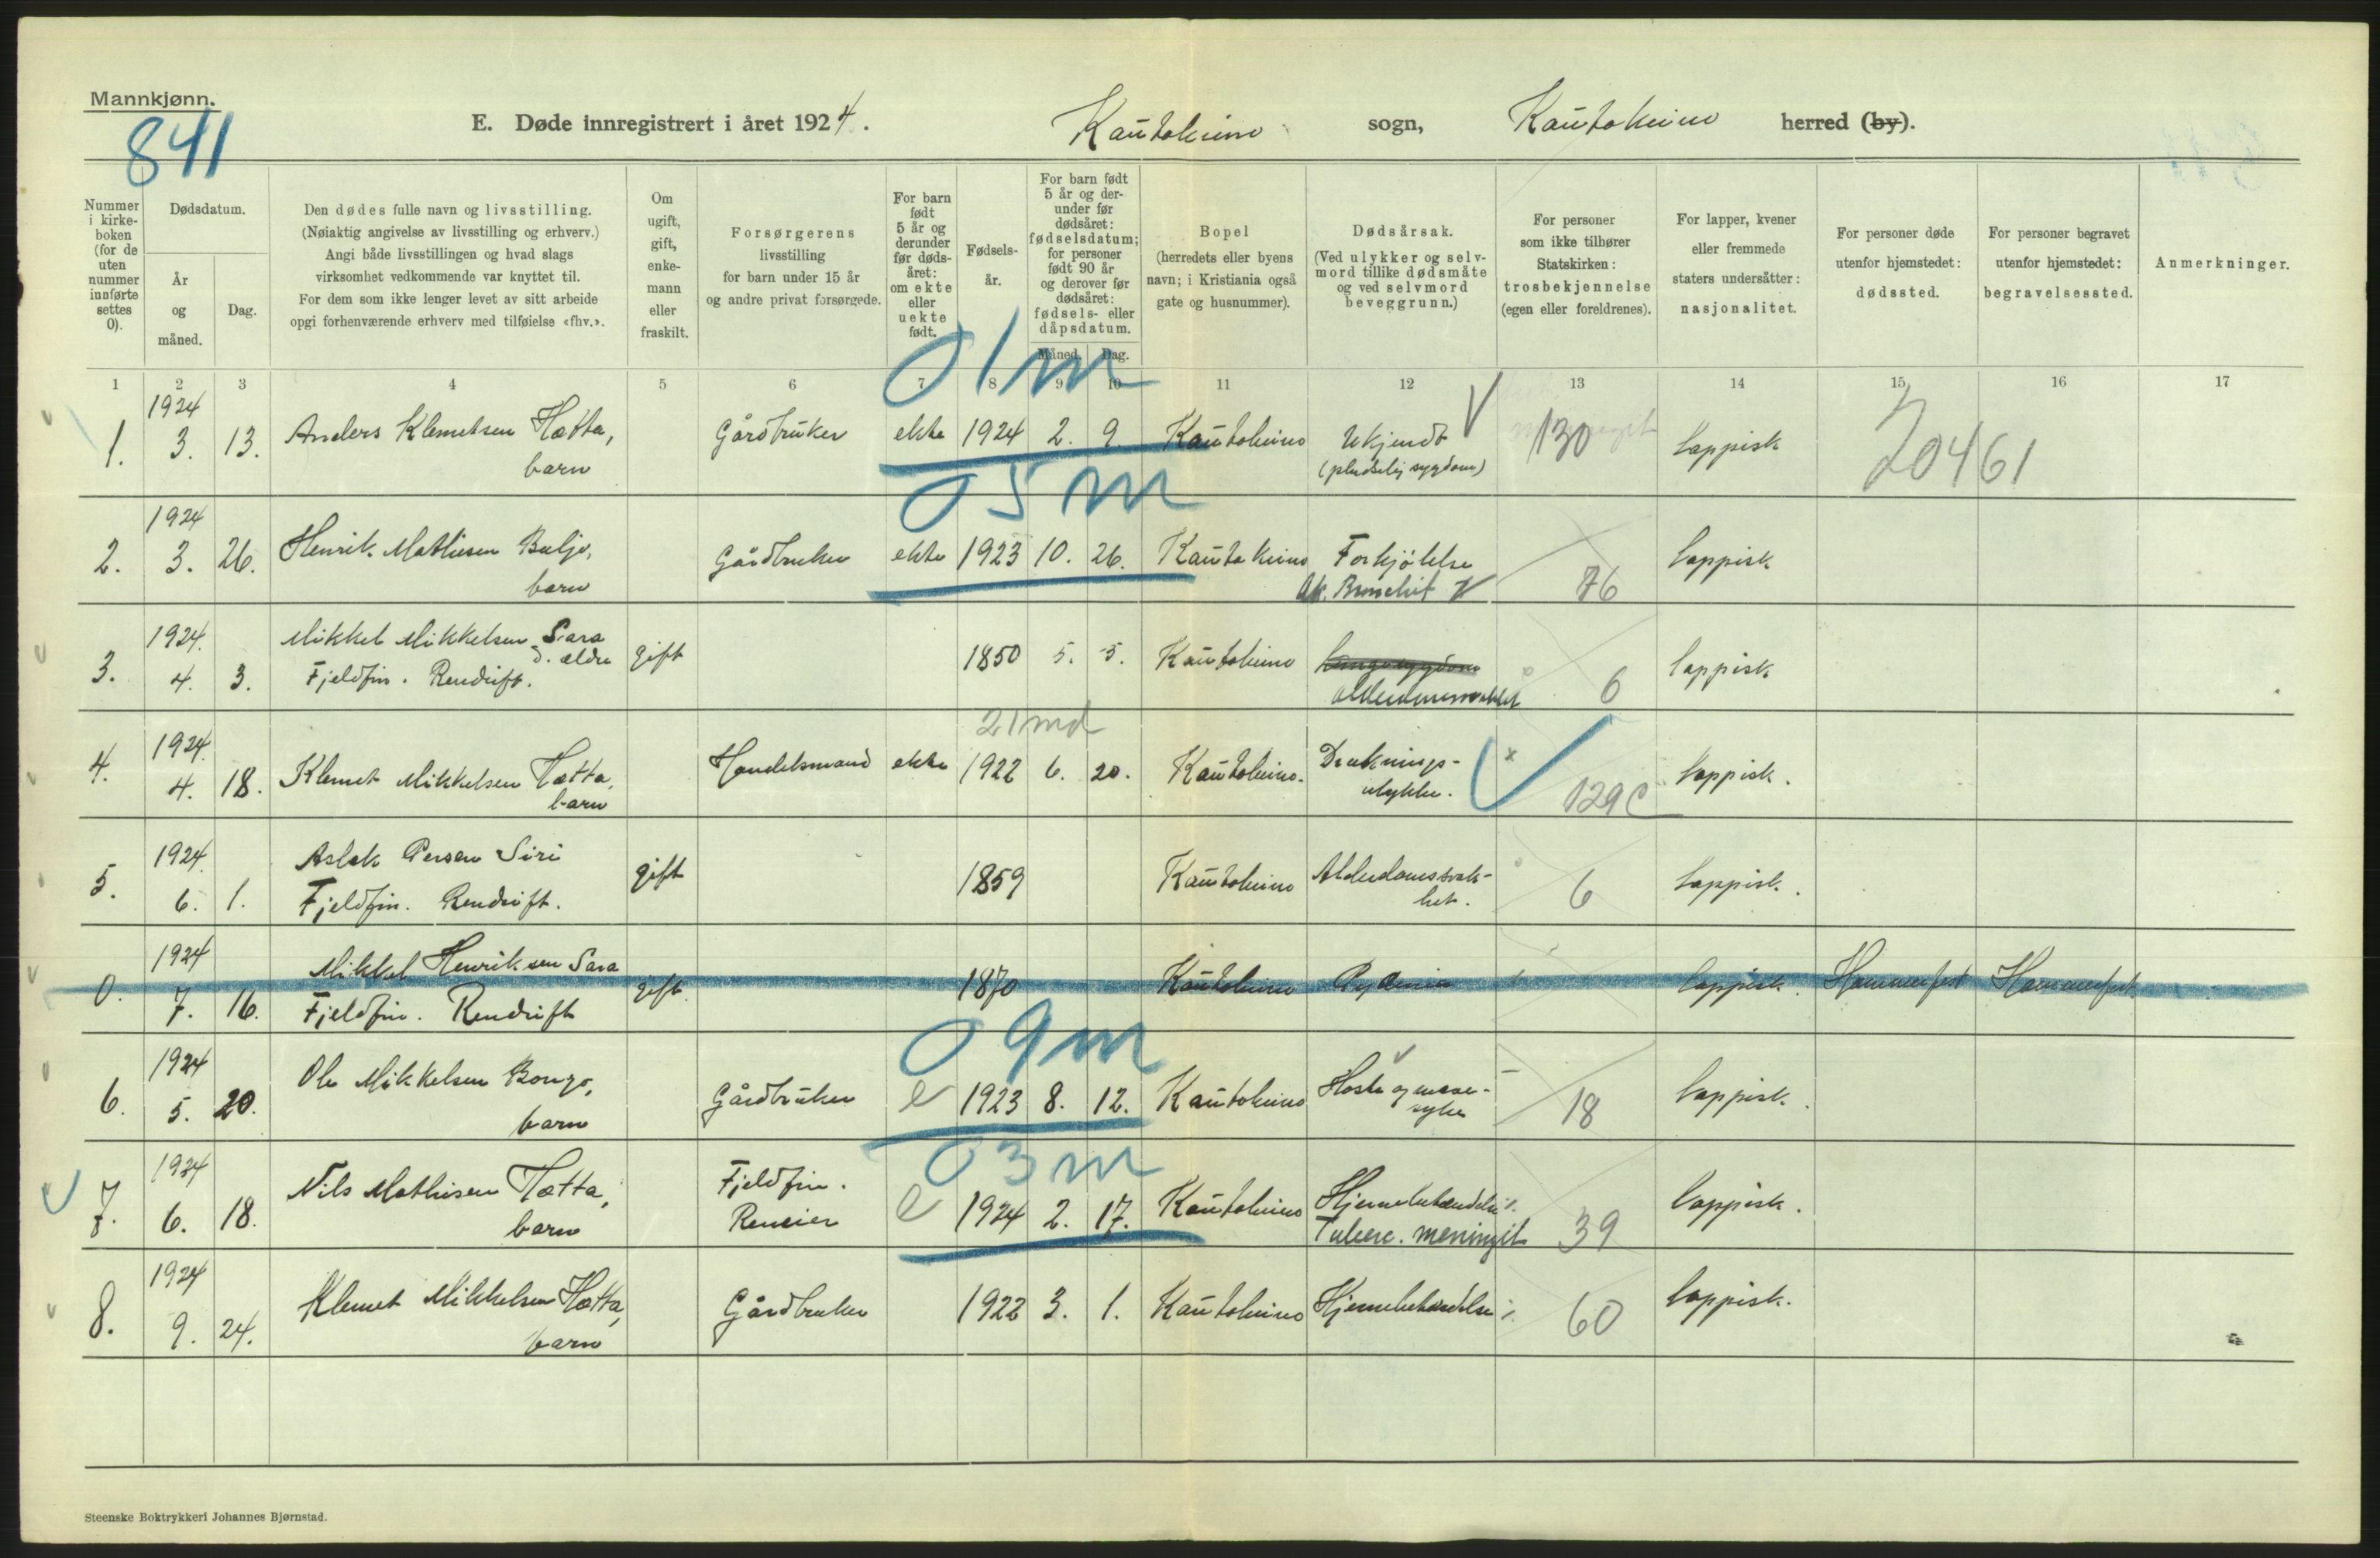 Mannkjønn.
841
E. Døde innregistrert i året 1924.
Kautokeino sogn, Kautokeino herred (by).
Nummer i kirkeboken (for de uten nummer innførte settes 0).
Dødsdatum.
År og måned.
Dag.
Den dødes fulle navn og livsstilling.
(Nøiaktig angivelse av livsstilling og erhverv.)
Angi både livsstillingen og hvad slags
virksomhet vedkommende var knyttet til.
For dem som ikke lenger levet av sitt arbeide
opgi forhenværende erhverv med tilføielse «fhv.».
Om ugift, gift, enkemann eller fraskilt.
Forsørgerens
livsstilling
for barn under 15 år
og andre privat forsørgede.
For barn født 5 år og derunder før dødsåret: om ekte eller uekte født.
Fødselsår.
For barn født 5 år og derunder før dødsåret: fødselsdatum; for personer født 90 år og derover før dødsåret: fødsels- eller dåpsdatum.
Måned. Dag.
Bopel
(herredets eller byens
navn; i Kristiania også
gate og husnummer).
Dødsårsak.
(Ved ulykker og selvmord tillike dødsmåte
og ved selvmord
beveggrunn.)
For personer
som ikke tilhører
Statskirken:
trosbekjennelse
(egen eller foreldrenes).
For lapper, kvener
eller fremmede
staters undersåtter:
nasjonalitet.
For personer døde
utenfor hjemstedet:
dødssted.
For personer begravet
utenfor hjemstedet:
begravelsessted.
Anmerkninger.
1 2 3 4 5 6 7 8 9 10 11 12 13 14 15 16 17
01m
1924
1. 3. 13. Anders Klemetsen Hætta, Gårdbruker ekte 1924 2. 9. Kautokeino Ukjendt 130 Lappisk 20461
barn (pludselig sygdom)
05m
1924
2. 3. 26. Henrik Mathisen Buljo, Gårdbruker ekte 1923 10. 26. Kautokeino Forkjølelse 76 Lappisk
barn Ak. Bronchit
1924.
3. 4. 3. Mikkel Mikkelsen Sara d. ældre gift 1850 5. 5. Kautokeino Lungesygdom Lappisk
Fjeldfin. Rendrift. Alderdomssvakhet 6
21 md
1924.
4. 4. 18. Klemet Mikkelsen Hætta, Handelsmand ekte 1922 6. 20. Kautokeino. Druknings- 129c Lappisk.
barn ulykke.
1924.
5. 6. 1. Aslak Persen Siri gift 1859 Kautokeino Alderdomssvak- 6 Lappisk.
Fjeldfin. Rendrift. het.
1924
0. 7. 16. Mikkel Henriksen Sara gift. 1870 Kautokeino Pydemia Lappisk. Hammerfest Hammerfest
Fjeldfin. Rendrift
09m
1924
6. 5. 20. Ole Mikkelsen Bongo, Gårdbruker e 1923 8. 12. Kautokeino Hoste og mave- 18 Lappisk.
barn syke
03m
1924
7. 6. 18. Nils Mathisen Hætta, Fjeldfin. e 1924 2. 17. Kautokeino Hjernebetændelse 39 Lappisk.
barn Reneier Tuberc. meningit
1924
8. 9. 24. Klemet Mikkelsen Hætta, Gårdbruker 1922 3. 1. Kautokeino Hjernebetændelse 60 Lappisk.
barn
Steenske Boktrykkeri Johannes Bjørnstad.